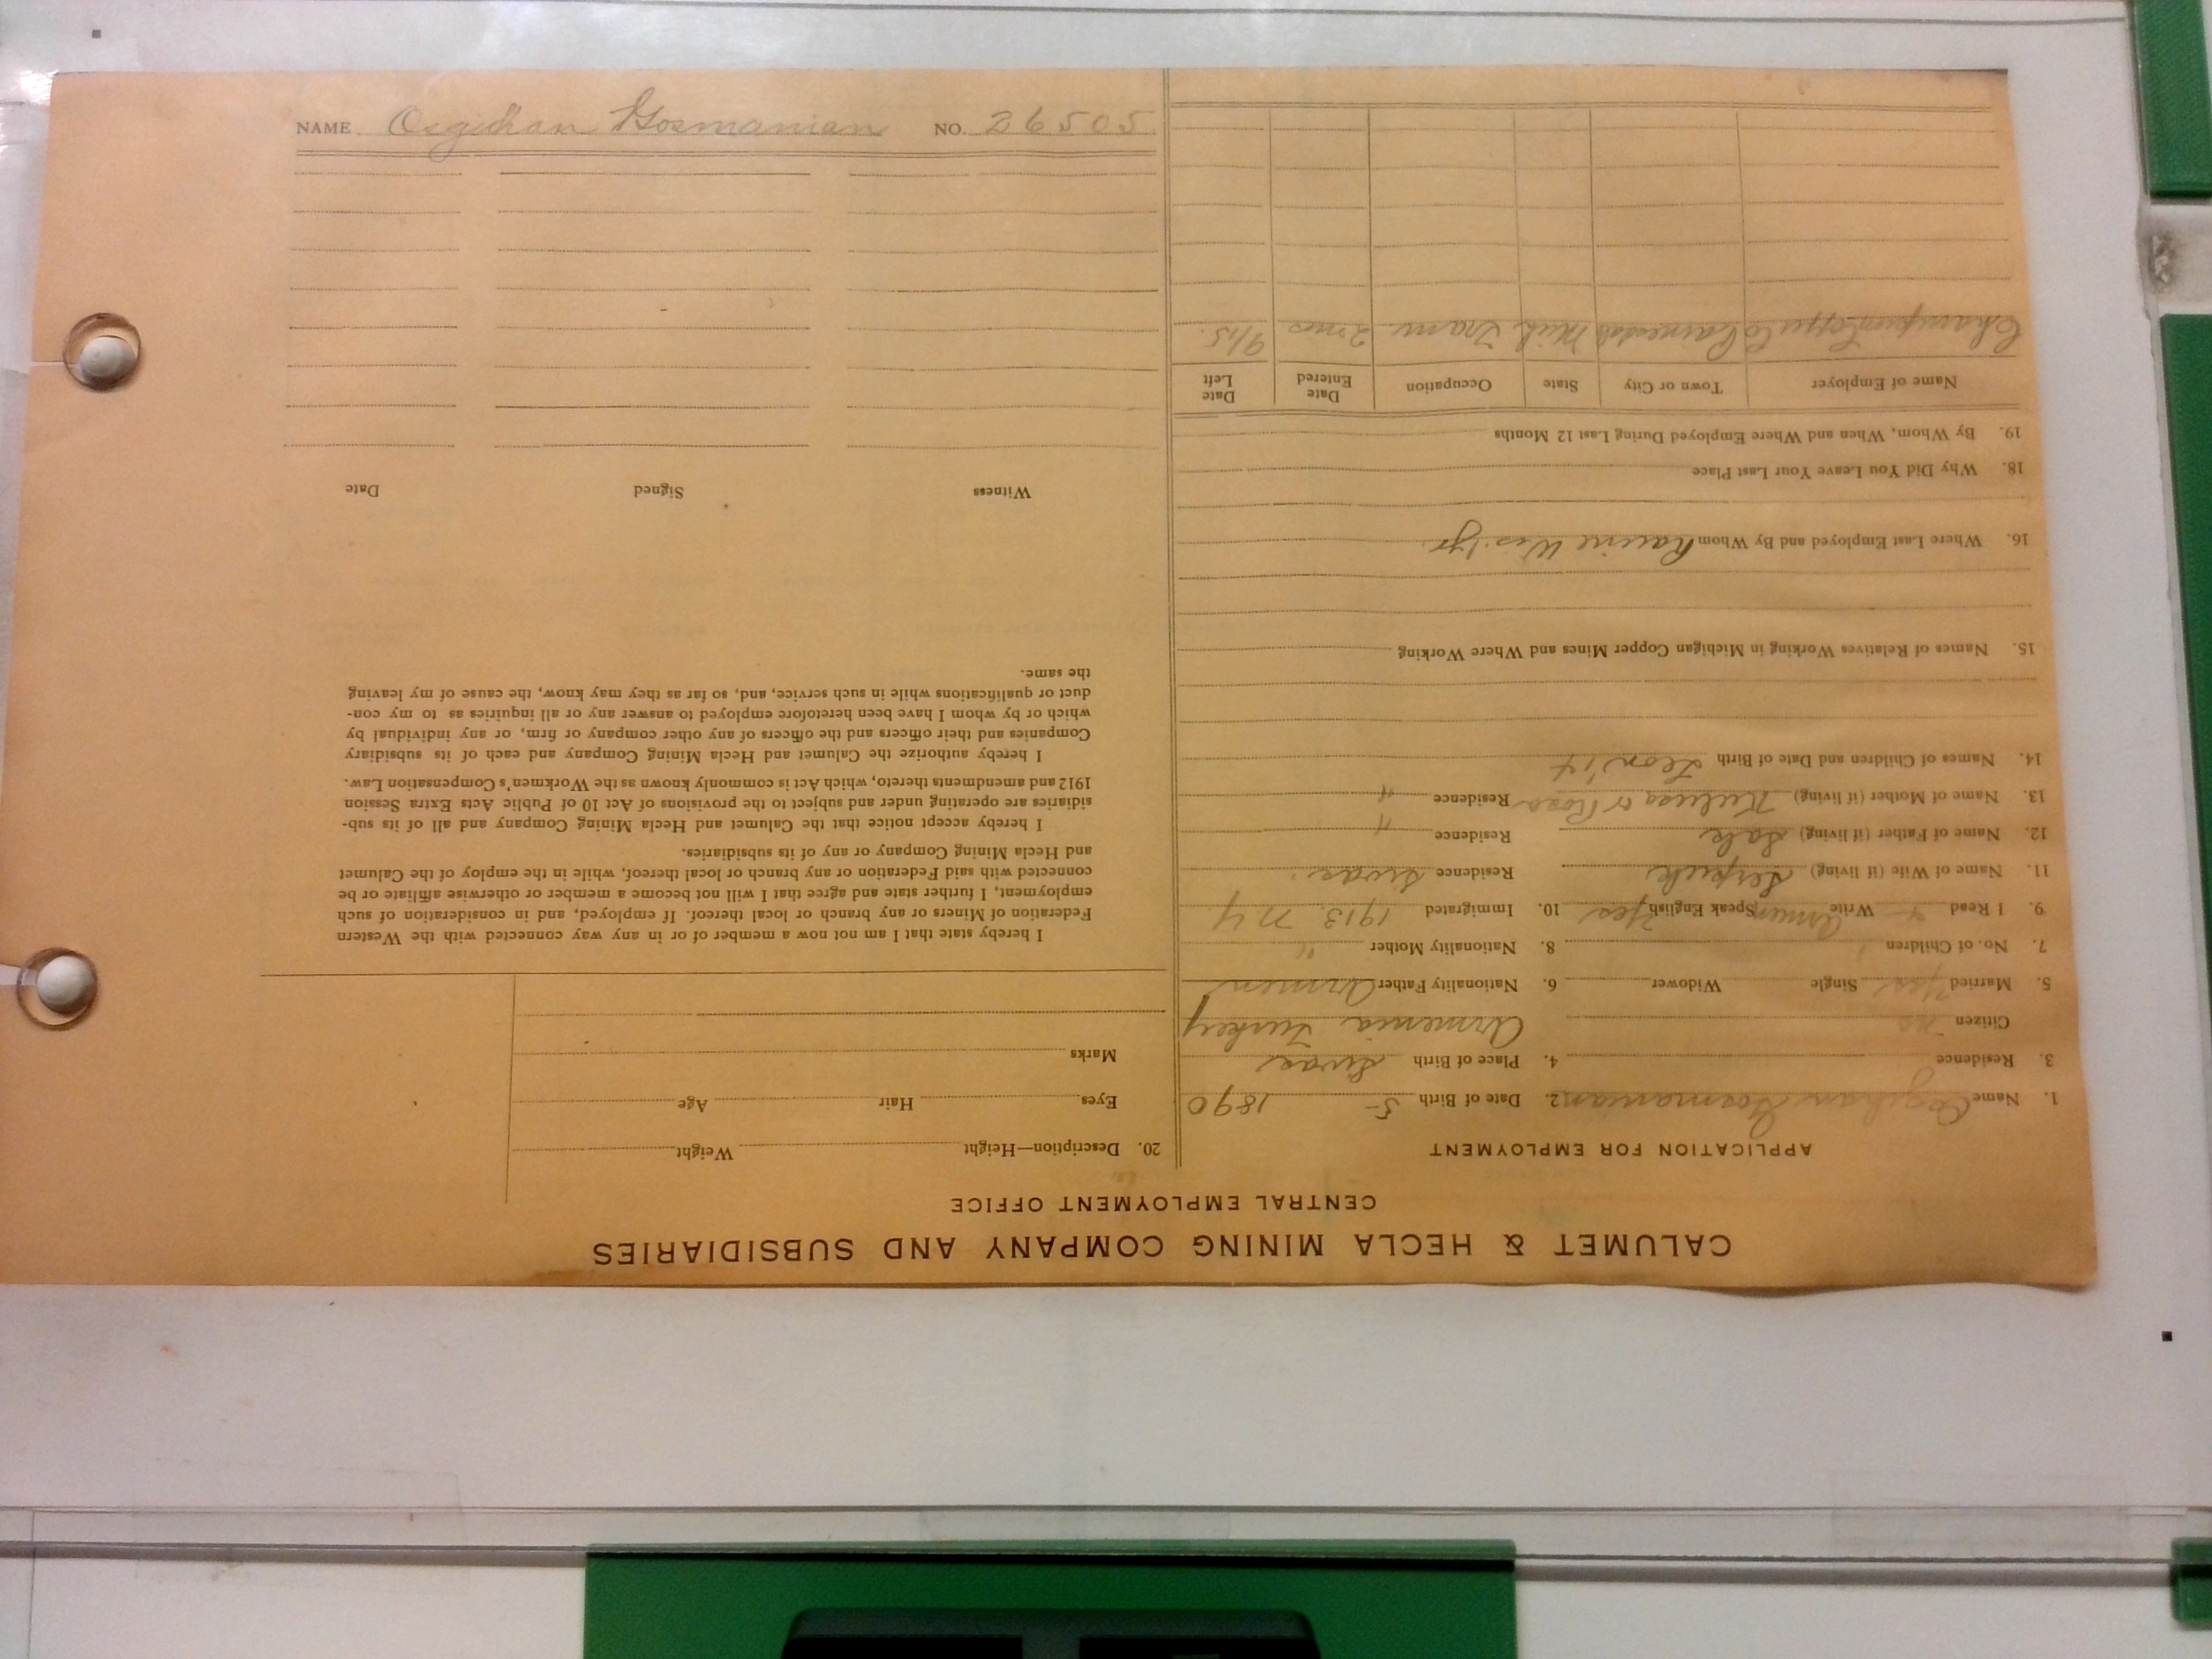 CALUMET & HECLA MINING COMPANY AND SUBSIDIARIES
CENTRAL EMPLOYMENT OFFICE
APPLICATION FOR EMPLOYMENT
1. Name Gosmanian 2. Date of Birth 5 1890
3. Residence 4. Place of Birth Sivas
Citizen no Armenia Turkey
5. Married Yes Single Widower 6. Nationality Father Armen
7. No. of Children 1 8. Nationality Mother "
9. I Read Write Armen Speak English Yes 10. Immigrated 1913 NY
11. Name of Wife (if living) Residence Sivas
12. Name of Father (if living) Residence "
13. Name of Mother (if living) Residence "
14. Names of Children and Date of Birth Leon '14
15. Names of Relatives Working in Michigan Copper Mines and Where Working
16. Where Last Employed and By Whom Racine Wis. 1 yr.
18. Why Did You Leave Your Last Place
19. By Whom, When and Where Employed During Last 12 Months
Name of Employer Town or City State Occupation Date Entered Date Left
Champion Copper Co Painesdale Mich Tram 2 mos 9/15.
20. Description—Height Weight
Eyes Hair Age
Marks
I hereby state that I am not now a member of or in any way connected with the Western
Federation of Miners or any branch or local thereof. If employed, and in consideration of such
employment, I further state and agree that I will not become a member or otherwise affiliate or be
connected with said Federation or any branch or local thereof, while in the employ of the Calumet
and Hecla Mining Company or any of its subsidiaries.
I hereby accept notice that the Calumet and Hecla Mining Company and all of its sub-
sidiaries are operating under and subject to the provisions of Act 10 of Public Acts Extra Session
1912 and amendments thereto, which Act is commonly known as the Workmen's Compensation Law.
I hereby authorize the Calumet and Hecla Mining Company and each of its subsidiary
Companies and their officers and the officers of any other company or firm, or any individual by
which or by whom I have been heretofore employed to answer any or all inquiries as to my con-
duct or qualifications while in such service, and, so far as they may know, the cause of my leaving
the same.
Witness Signed Date
NAME Gosmanian NO. 26505